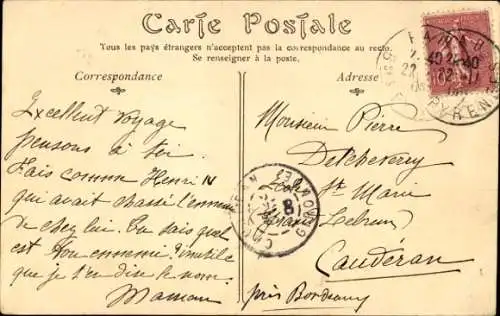 Carte Postale
Tous les pays étrangers n'acceptent pas la correspondance au recto.
Se renseigner à la poste.
Correspondance
Adresse
Excellent voyage
pensons à toi.
Fais comme Henri IV
qui avait chassé l'ennemi
de chez lui. Tu sais quel
est ton ennemi inutile
que je t'en dise le nom.
Maman
Monsieur Pierre
Detcheverry
Ste Marie
Grand Lebrun
Caudéran
près Bordeaux
PAU
PYRENEES
CAUDERAN
GIRONDE